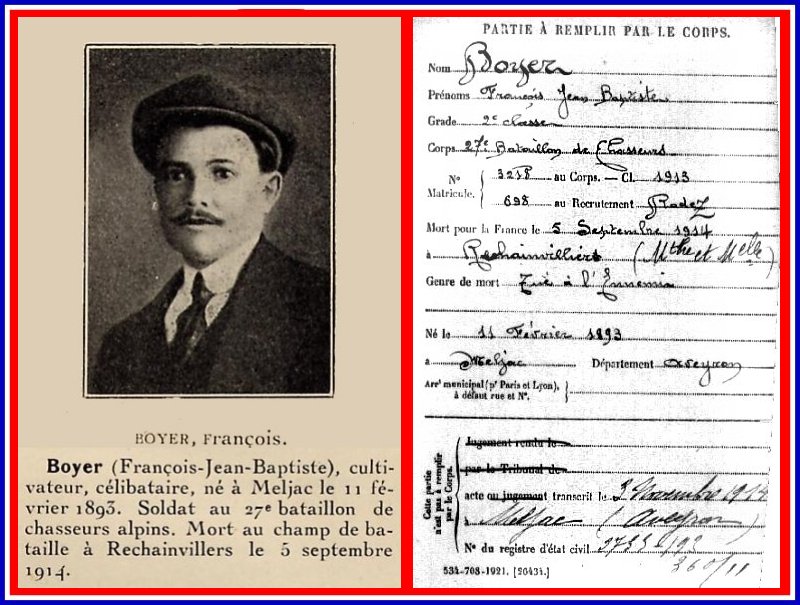 BOYER, François.
Boyer (François-Jean-Baptiste), culti-
vateur, célibataire, né à Meljac le 11 fé-
vrier 1893. Soldat au 27e bataillon de
chasseurs alpins. Mort au champ de ba-
taille à Rechainvillers le 5 septembre
1914.
PARTIE À REMPLIR PAR LE CORPS.
Nom Boyer
Prénoms François Jean Baptiste
Grade 2e classe
Corps 27e Bataillon de Chasseurs
N° Matricule. 3218 au Corps. — Cl. 1913
698 au Recrutement Rodez
Mort pour la France le 5 Septembre 1914
à Rechainvillers (Mthe et Mselle)
Genre de mort Tué à l'Ennemi
Né le 11 Février 1893
à Meljac Département Aveyron
Arrt municipal (pr Paris et Lyon),
à défaut rue et N°.
Cette partie
n'est pas à remplir
par le Corps.
Jugement rendu le
par le Tribunal de
acte ou jugement transcrit le 2 Novembre 1914
à Meljac (Aveyron)
N° du registre d'état civil
534-708-1921. [26434.]